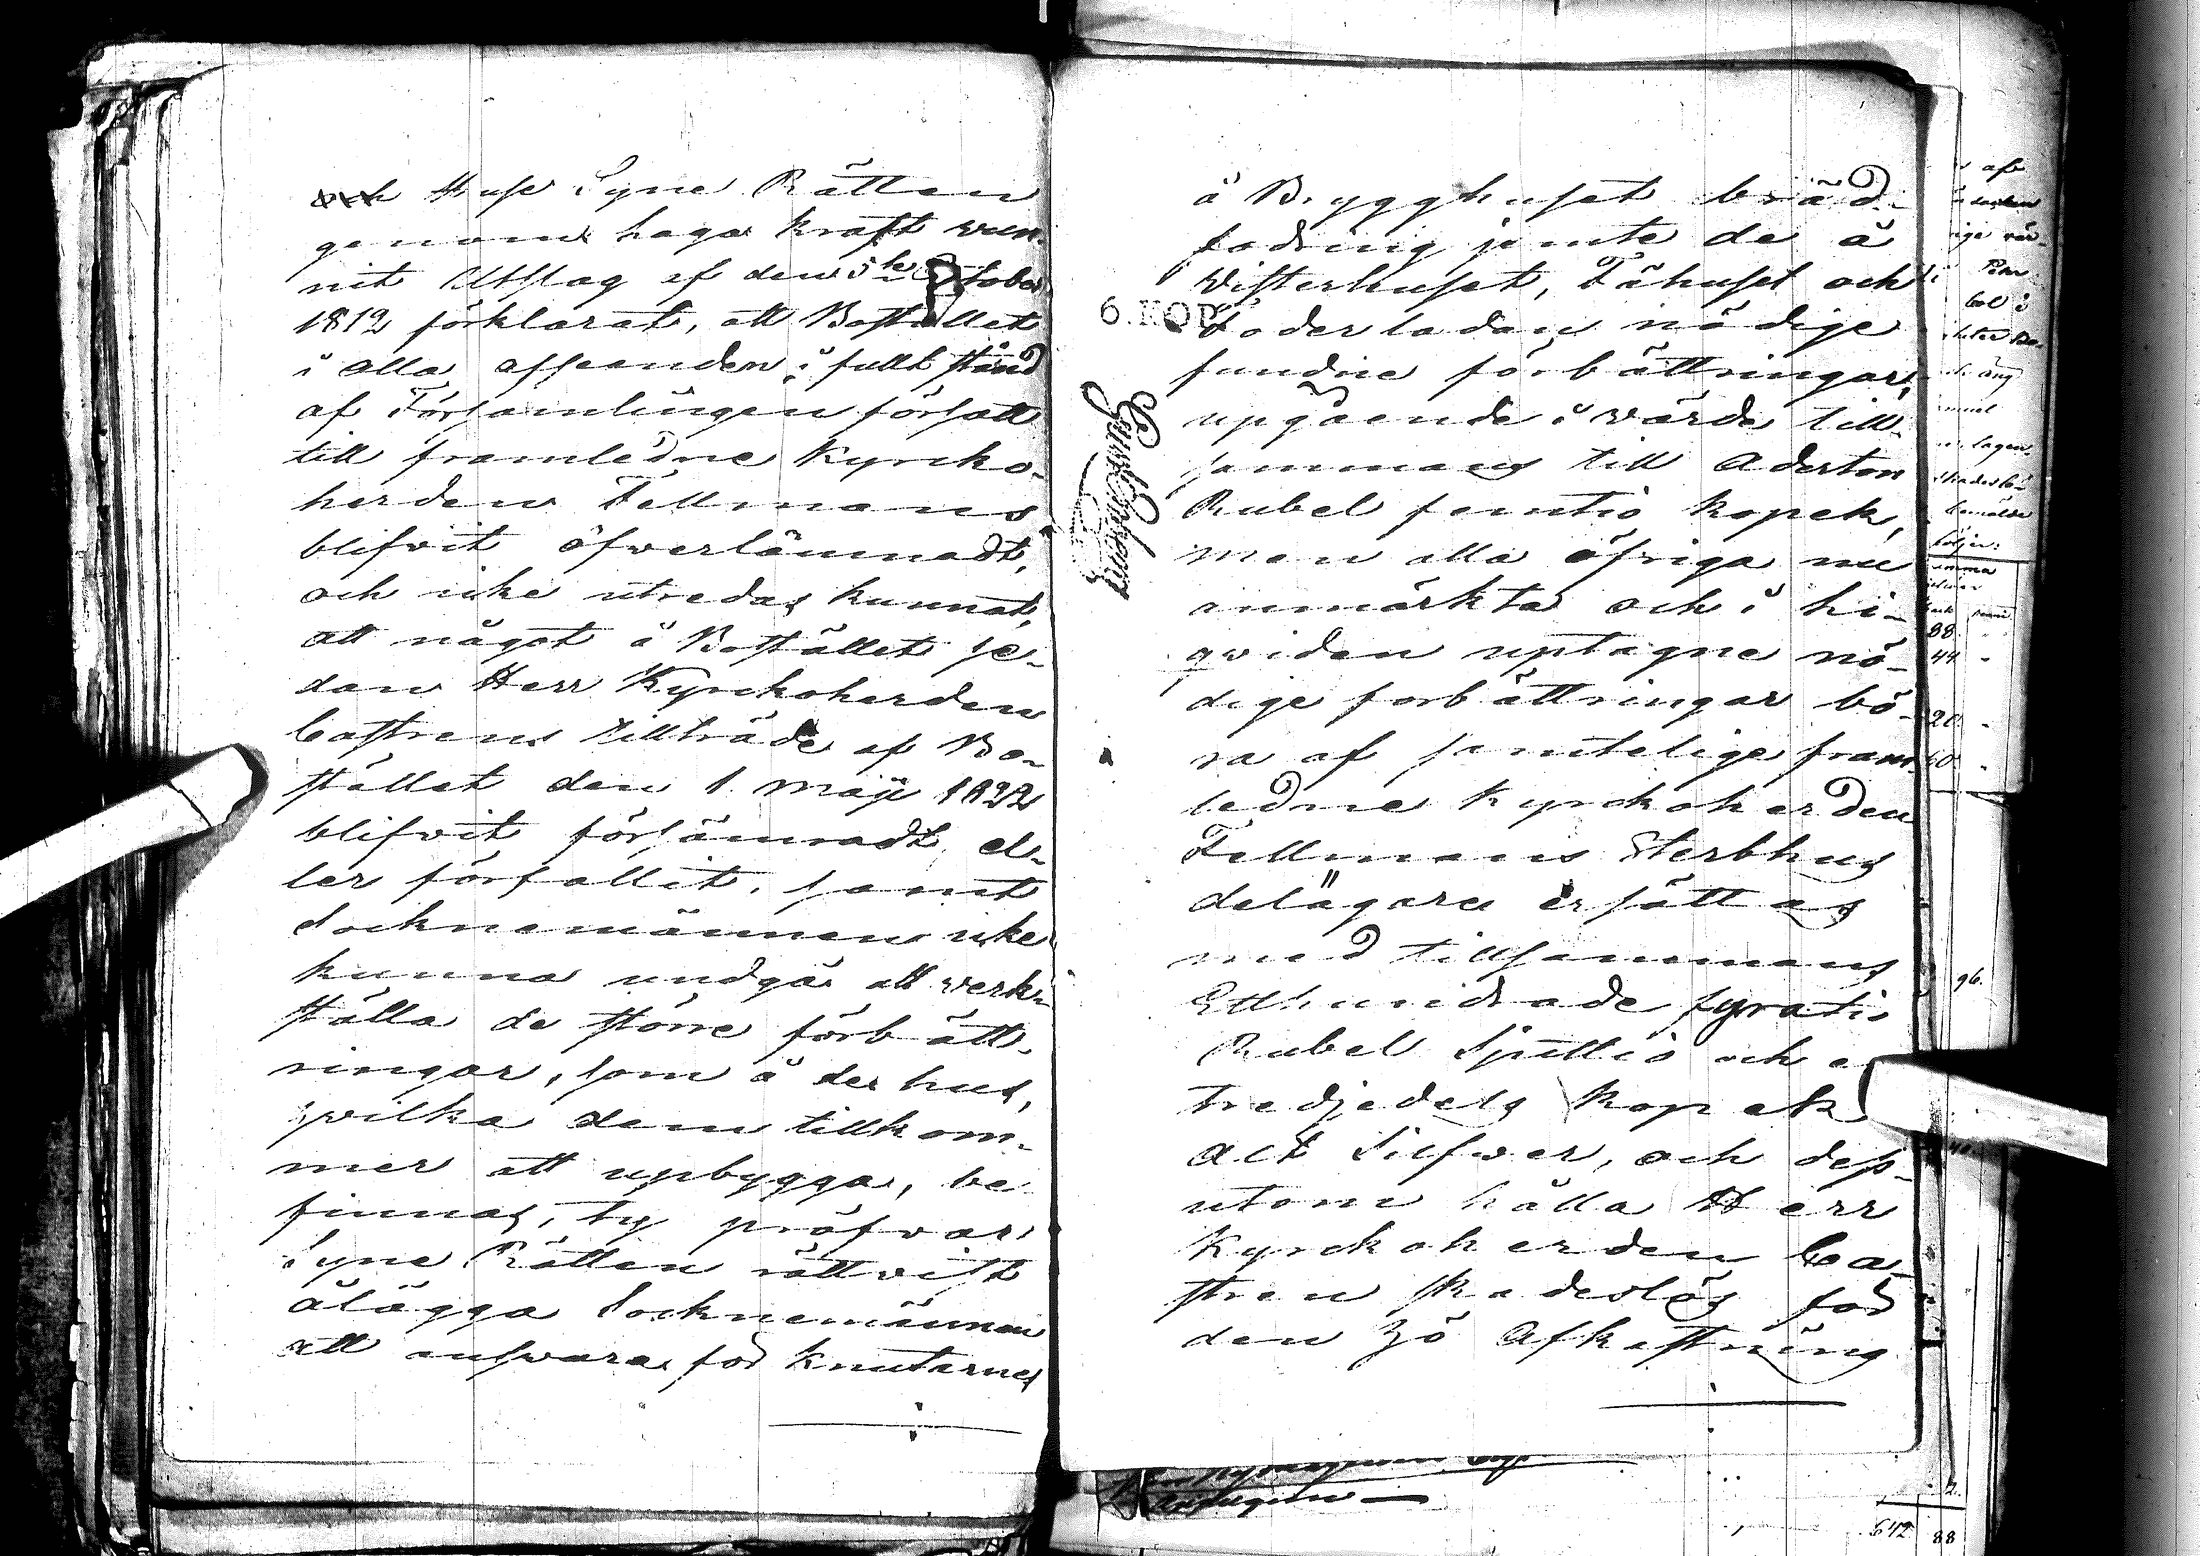 och Huse Syne Rätten
genom laga kraft wun-
nit Utslag af den 5te October
1812 förklarat, att Bostället
i alla afseenden i fullt stånd
af Församlingen försatt
till framledne Kyrcko-
herden Fellmans
blifvit öfverlämnadt,
och icke utredas kunnat,
att något å Bostället se-
dan Herr Kyrckoherden
Castrens tillträde af Bo-
stället den 1 Maji 1822
blifvit försämradt el-
ler förfallit, samt
Socknemännen icke
kunna undgå att verk-
ställa de större förbätt-
ringar, som å de hus,
hvilka dem tillkom-
mer att upbygga, be-
finnas, ty pröfvar
Syne Rätten rättvist
ålägga Socknemännen
att answara för knutarnes
å Brygghuset bräd-
fodring jemte de å
Visterhuset, Fähuset och
Foderladan nödige
fundne förbättringar,
upgående i värde till-
sammans till Aderton
Rubel femtio kopek,
men alla öfriga nu
anmärkta och i Li-
qviden uptagne nö-
dige förbättringar bö-
ra af samtelige fram-
ledne Kyrckoherden
Fellmans Sterbhus
delägare ersättas
med tillsammans
Etthundrade fyratio
Rubel Sjuttio och e
tredjedels kopek
alt Silfwer, och dess-
utom hålla Herr
Kyrckoherden Ca-
stren skadeslös för
den 3/8 Afkastning
6. KOP.